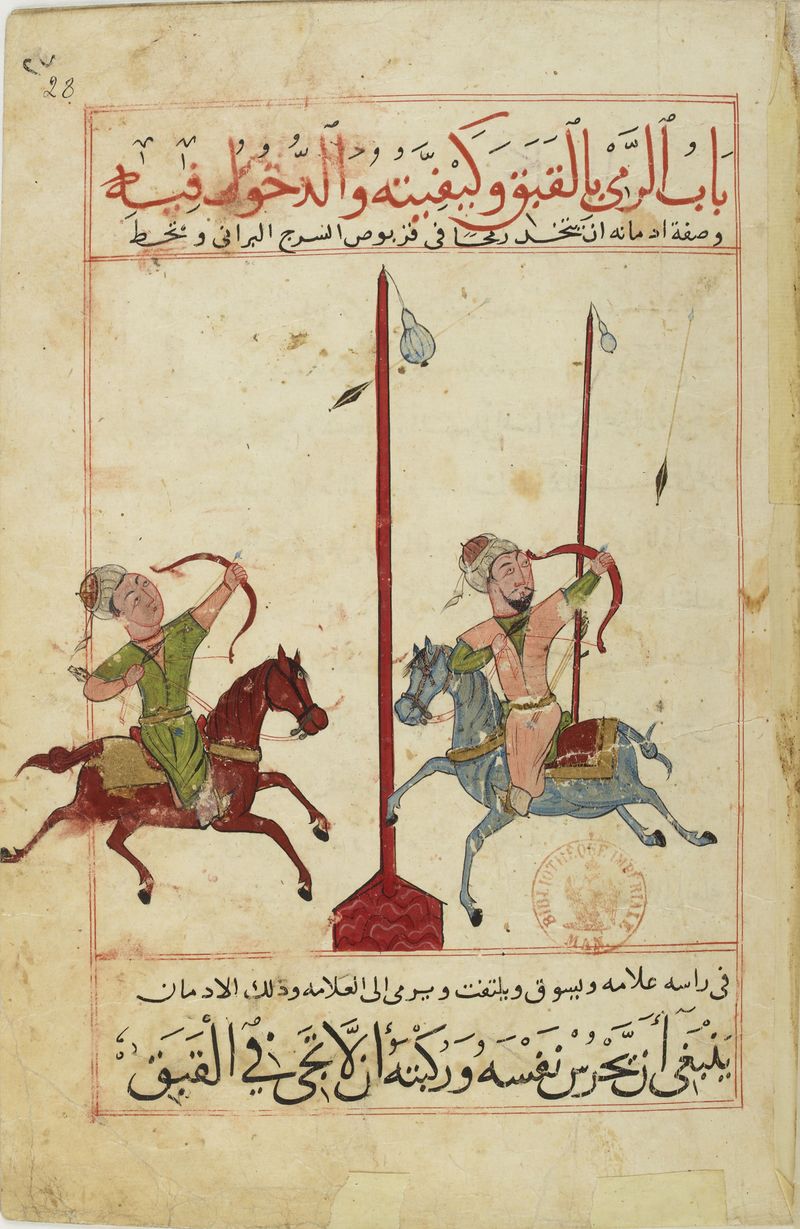 28
باب الرَّمي بالقبق وكيفيته والدخول فيه
وصفة ادمانه ان يتخذ رمحا فى قربوص السرج البرانى ويحط
BIBLIOTHÈQUE IMPÉRIALE MAN.
فى راسه علامه ويسوق ويلتفت ويرمى الى العلامه وذلك الادمان
ينبغى أن يَحْرس نفسَه وركبته أن لاَّ تجى في القَبَق